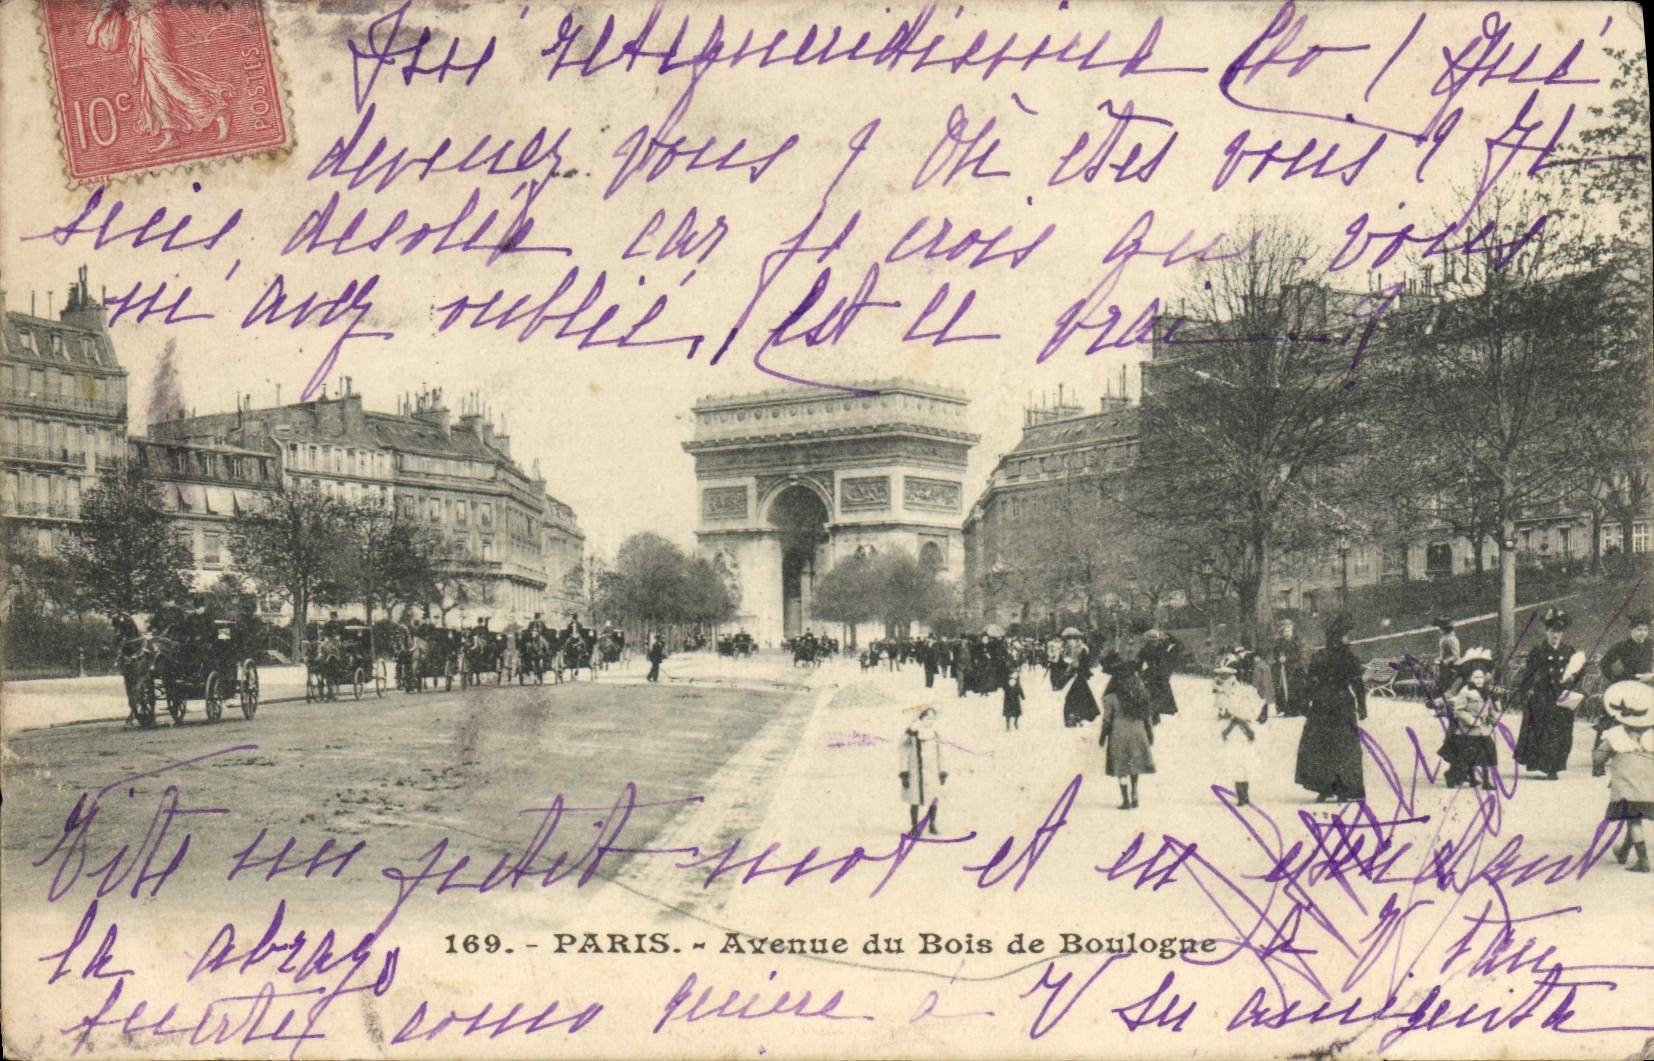 10c POSTES
Mi retegueridisima ! Qué
devenez vous ? Où êtes vous ? Je
suis désolée car je crois que vous
m'avez oubliée, est ce vrai ?
Vite un petit mot et en attendant
la abrazo a V. tan
fuerte como quiere à V Su amiguita
169. - PARIS. - Avenue du Bois de Boulogne